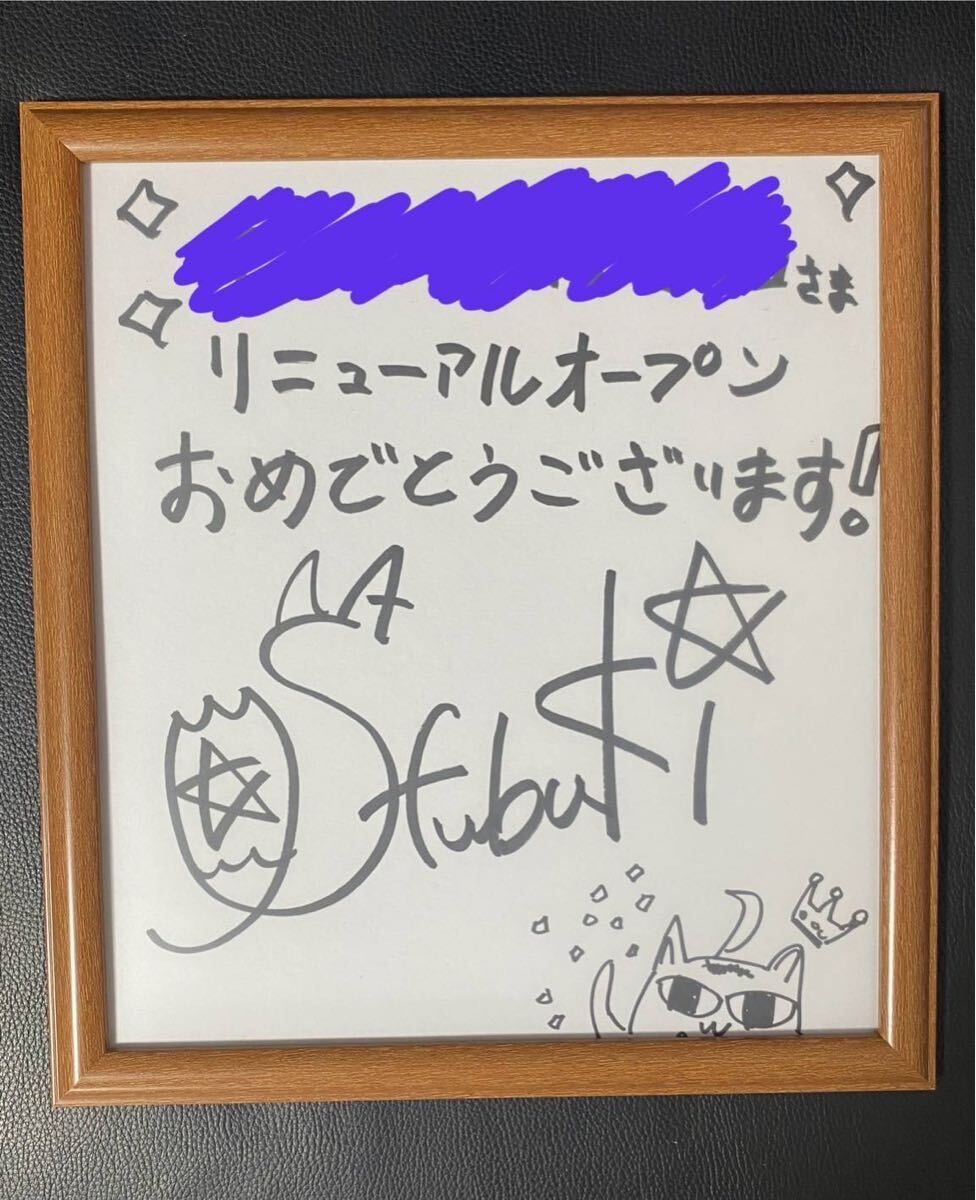 さま
リニューアルオープン
おめでとうございます!
Sfubuki